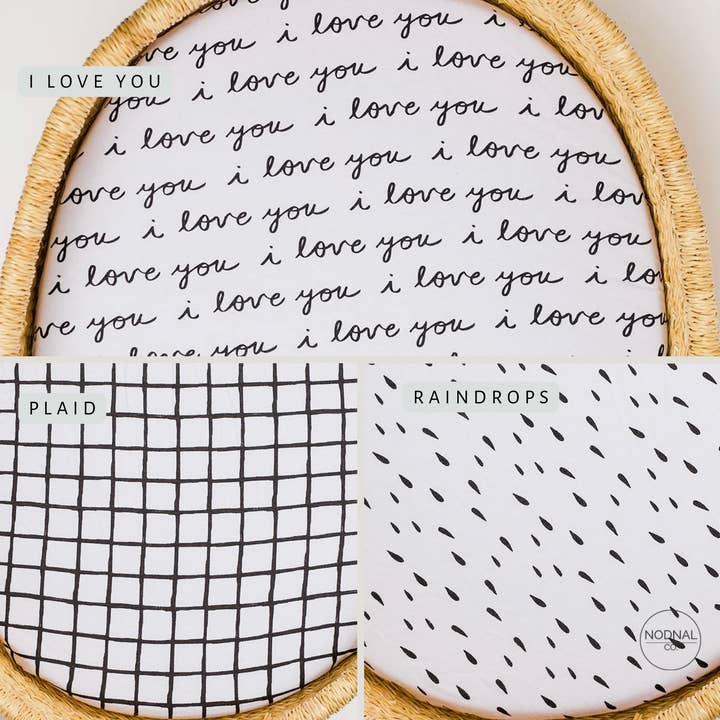 you i love you i
I LOVE YOU
you i love you i love you
i love you i love you i lov
ove you i love you i love you
you i love you i love you i lov
i love you i love you i love you
ve you i love you i love you i lo
i love you i love you
PLAID
RAINDROPS
NODNAL
CO.